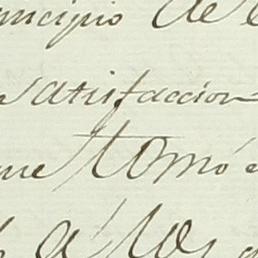 ncipio de
satisfaccion
ue tomó
á los